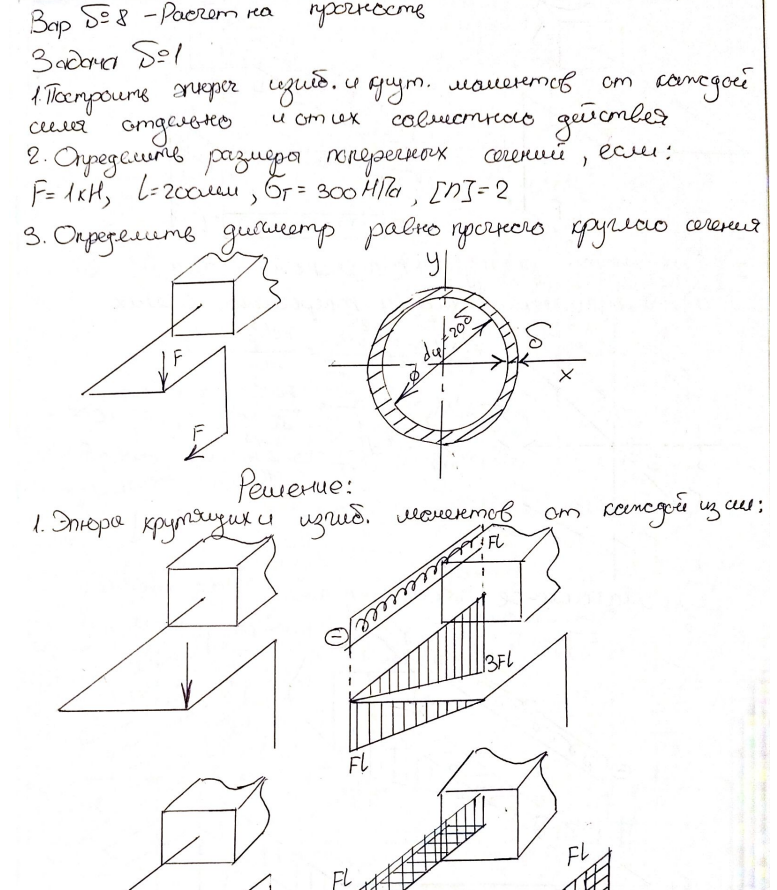 Вар №8 - Расчет на прочность
Задача №1
1. Построить эпюры изгиб. и крут. моментов от каждой
силы отдельно и от их совместного действия
2. Определить размеры поперечных сечений, если:
F=1кН, l=200мм, σт=300МПа, [n]=2
3. Определить диаметр равнопрочного круглого сечения
y
F
dв=20δ
δ
ϕ
x
F
Решение:
1. Эпюра крутящих и изгиб. моментов от каждой из сил:
Fl
⊖
3Fl
Fl
Fl
Fl